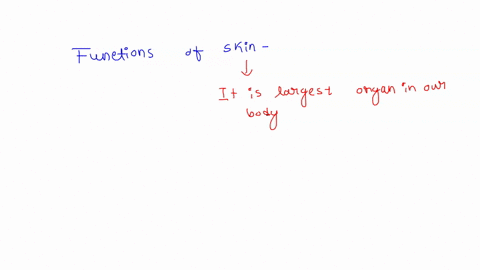 Functions of skin -
It is largest organ in our
body